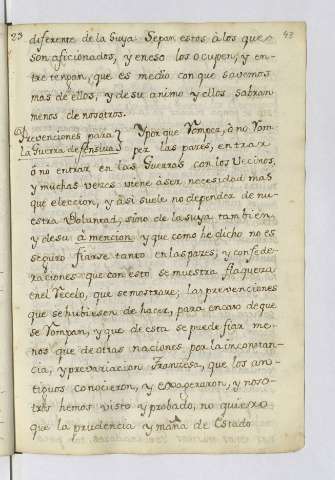 23 43
diferente de la Suya. Sepan estos à los que
son aficionados, y eneso los ocupen, y en-
tretengan, que es medio con que savemos
mas de ellos, y de su animo y ellos sabran
menos de nosotros.
Prevenciones para Y porque Romper, ò no Rom-
La Guerra defensiva per las pazes, entrar
ò no entrar en las Guerras con los Vecinos,
y muchas veces viene à ser necesidad mas
que eleccion, y àsi suele no depender de nu-
estra Voluntad, sino de la suya tambien,
y de su à mencion y que como he dicho no es
seguro fiarse tanto en las pazes; y confede-
raciones que con esto se muestra flaqueza
en el Recelo, que se mostrare; las prevenciones
que se hubiesen de hacer, para en caso de que
se Rompan, y que de esta se puede fiar me-
nos que de otras naciones por la inconstan-
cia, y prevaricacion Francesa, que los an-
tiguos conocieron, y exageraron, y noso-
tros hemos visto y probado, no quiero
que la prudencia y maña de Estado